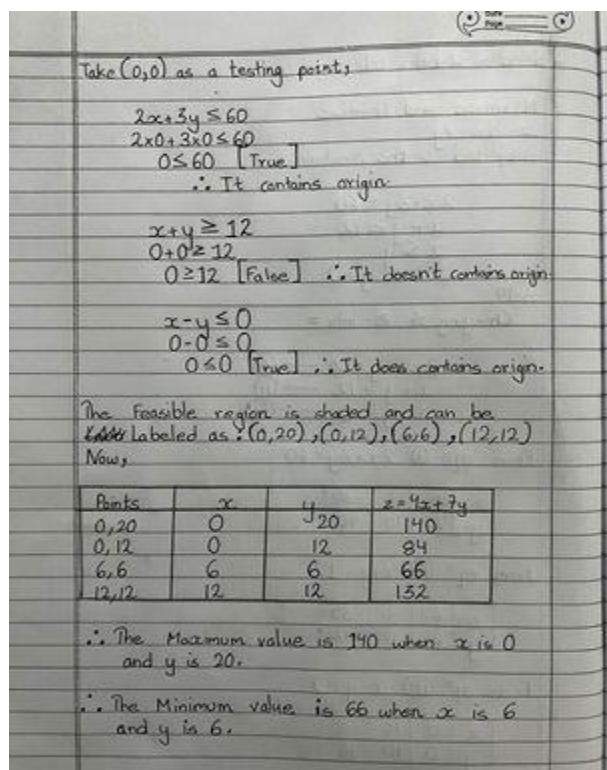 Date
Page
Take (0,0) as a testing point,
2x+3y ≤ 60
2x0+3x0 ≤ 60
0 ≤ 60 [True]
∴ It contains origin.
x+y ≥ 12
0+0 ≥ 12
0 ≥ 12 [False] ∴ It doesn't contains origin.
x-y ≤ 0
0-0 ≤ 0
0 ≤ 0 [True] ∴ It does contains origin.
The Feasible region is shaded and can be
Labeled as : (0,20), (0,12), (6,6), (12,12)
Now,
Points x y z = 4x+7y
0,20 0 20 140
0,12 0 12 84
6,6 6 6 66
12,12 12 12 132
∴ The Maximum value is 140 when x is 0
and y is 20.
∴ The Minimum value is 66 when x is 6
and y is 6.